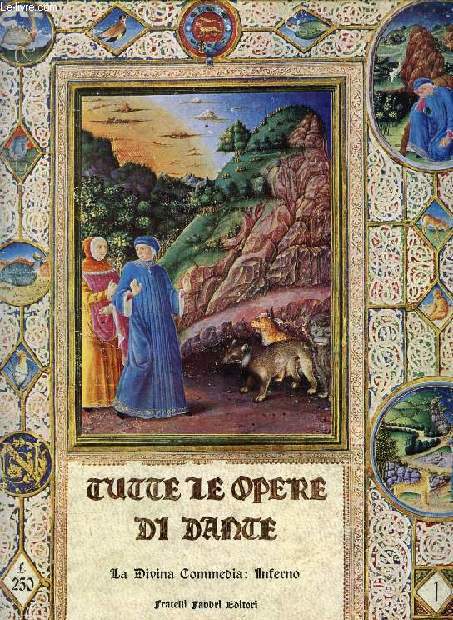 © Le-Livre.com
TUTTE LE OPERE
DI DANTE
La Divina Commedia: Inferno
Fratelli Fabbri Editori
£
250
1